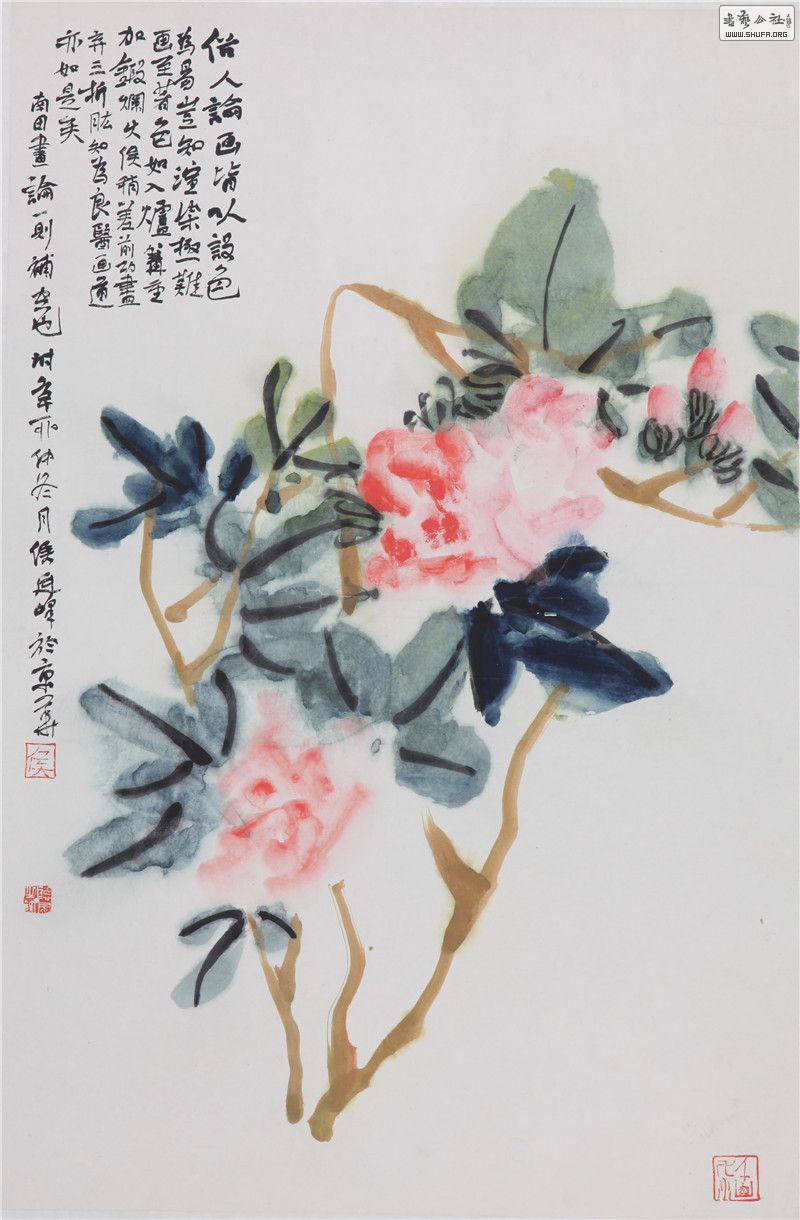 俗人論画皆以設色
為易豈知渲染極難
画至著色如入爐篝重
加鍛爛火候稍差前功盡
弃三折肱知為良醫画道
亦如是矣
南田畫論一則補空也 時辛卯仲冬月侯廷峰於京華
侯
書藝公社
WWW.SHUFA.ORG